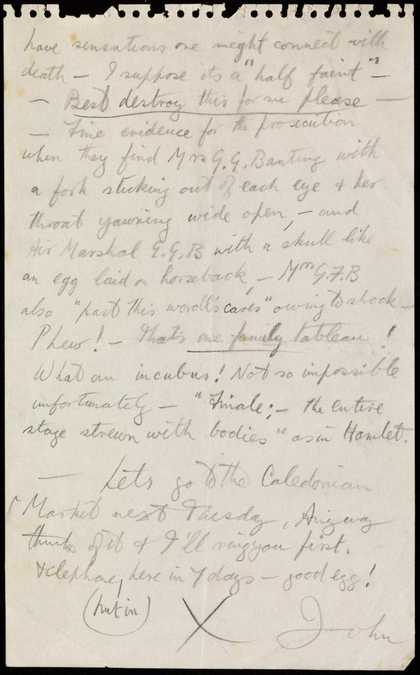 have sensations one might connect with
death — I suppose its a "half faint" —
— Best destroy this for me please —
— Fine evidence for the prosecution
when they find Mrs G. G. Banting with
a fork sticking out of each eye & her
throat yawning wide open, — and
Air Marshal E. G. B with a skull like
an egg laid on horseback, — Mrs G. F. B
also "past this world's cares" owing to shock —
Phew! — that's one family tableau!
What an incubus! Not so impossible
unfortunately — "Finale: — the entire
stage strewn with bodies" as in Hamlet.
— Lets go to the Caledonian
Market next Tuesday, Anyway
think of it & I'll ring you first.
telephone, here in 7 days — good egg!
(put in)
X John